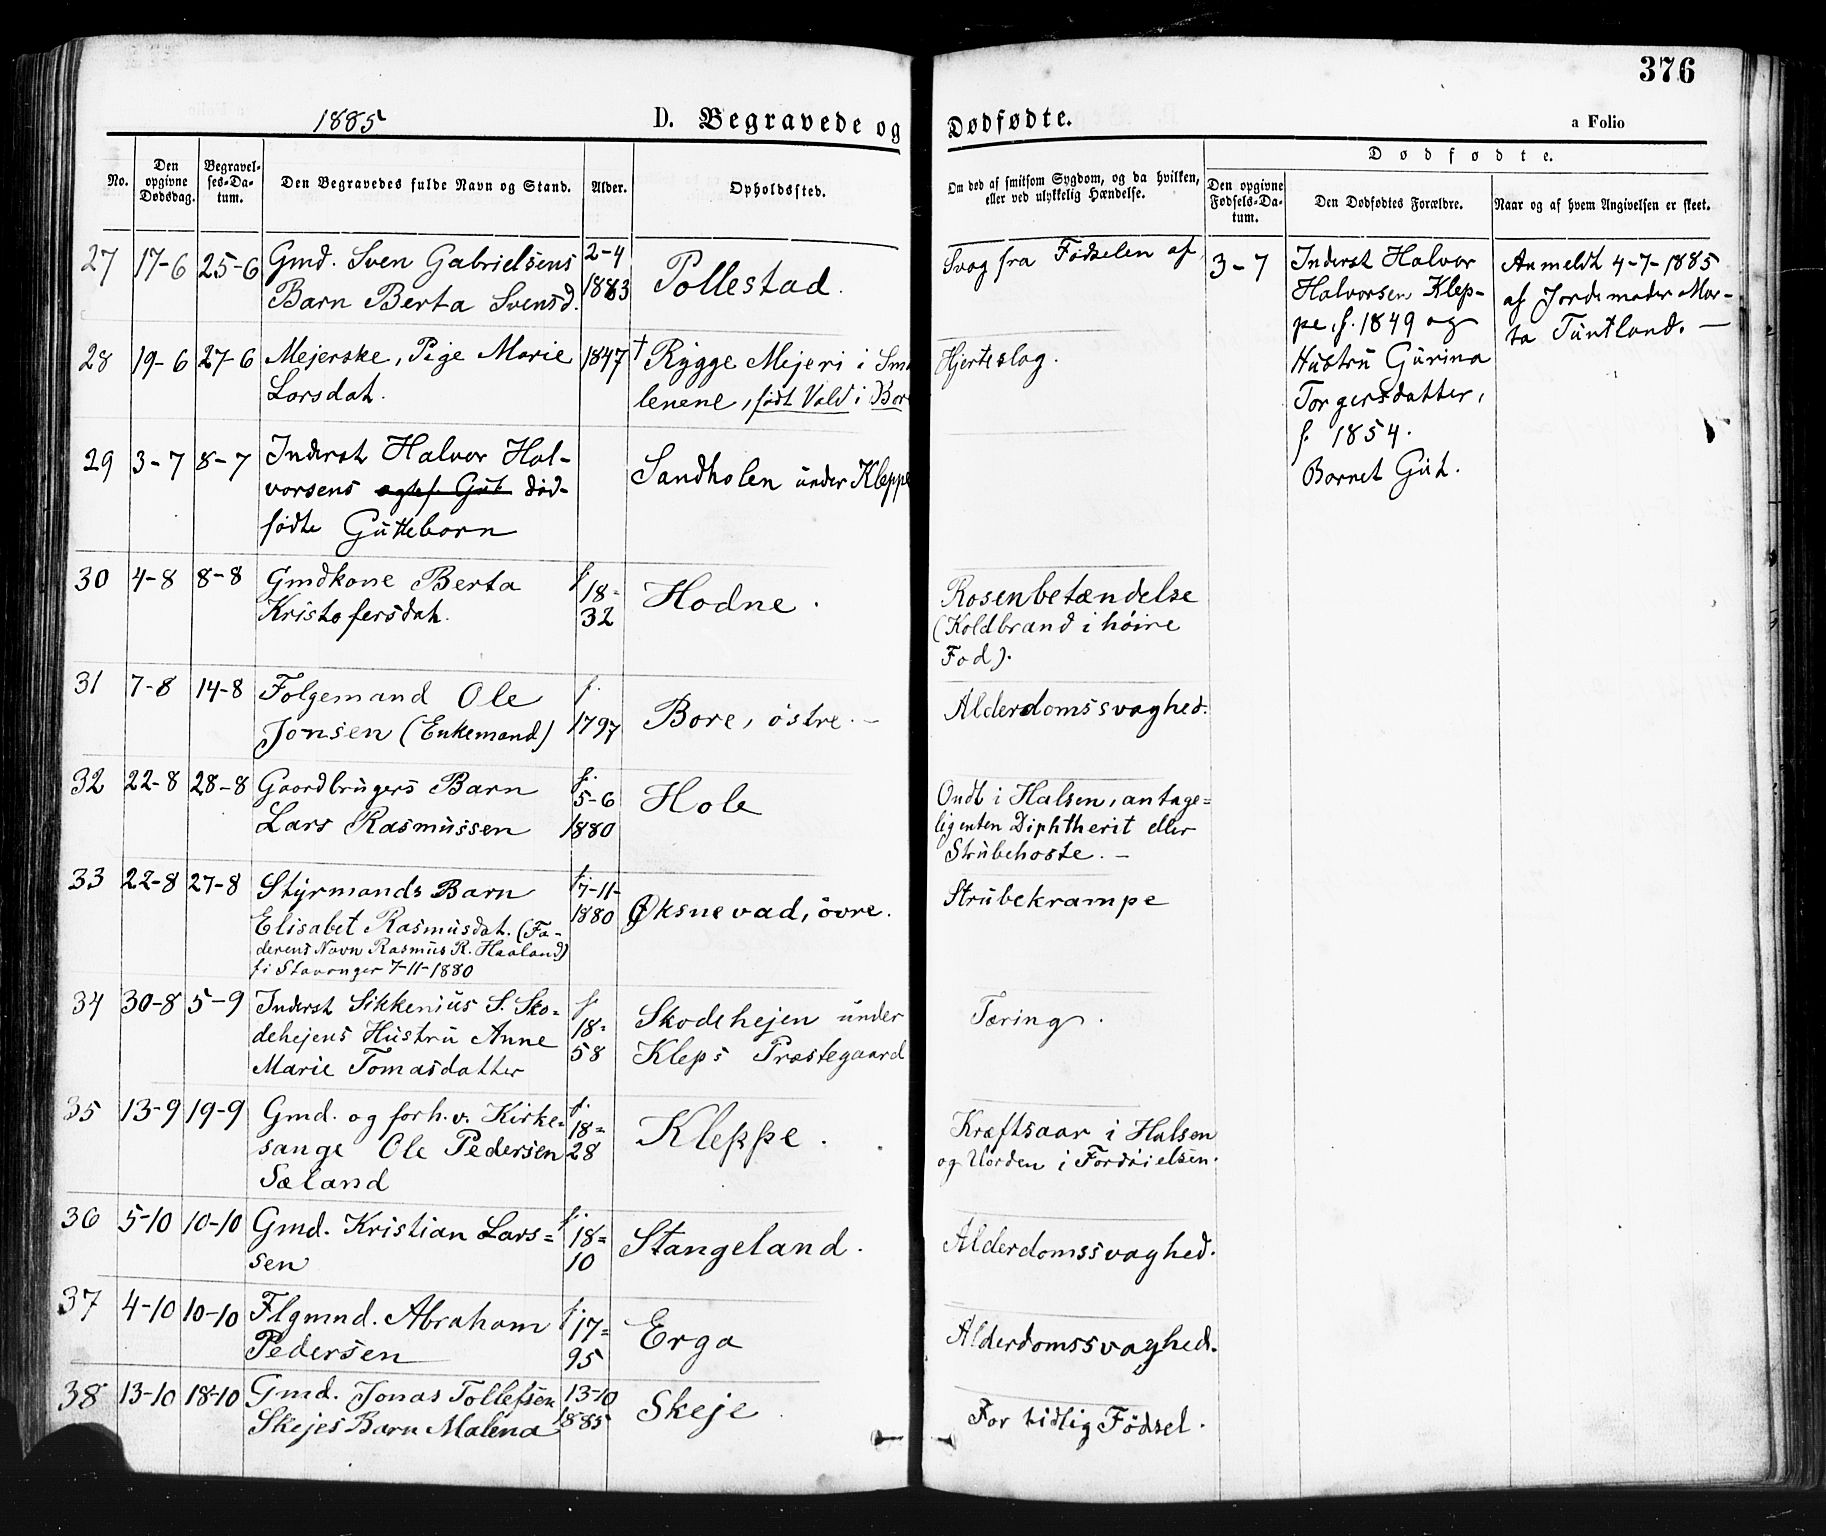 376
1885
D. Begravede og Dødfødte.
a Folio
No.
Den opgivne Dødsdag.
Begravelses-Datum.
Den Begravedes fulde Navn og Stand.
Alder.
Opholdssted.
Om død af smitsom Sygdom, og da hvilken,
eller ved ulykkelig Hændelse.
Dødfødte.
Den opgivne Fødsels-Datum.
Den Dødfødtes Forældre.
Naar og af hvem Angivelsen er skeet.
27 17-6 25-6
Gmd. Sven Gabrielsens
Barn Berta Svensd.
2-4
1883
Pollestad.
Svag fra Fødselen af
3-7
Inderst Halvor
Halvorsen Klep-
pe, f. 1849 og
Hustru Gurina
Torgersdatter,
f. 1854.
Barnet Gut.
Anmeldt 4-7-1885
af Jordemoder Mar-
ta Tuntland. —
28 19-6 27-6
Mejerske, Pige Marie
Larsdat.
1847
† Rygge Mejeri i Sma
lenene, født Vold i Bore
Hjerteslag.
29 3-7 8-7
Inderst Halvor Hal-
vorsens ægtef. Gut død-
fødte Guttebarn
Sandholen under Kleppe
30 4-8 8-8
Gmdkone Berta
Kristofersdat.
f.
18-
32
Hodne.
Rosenbetændelse
(Koldbrand i høire
Fod).
31 7-8 14-8
Folgemand Ole
Jonsen (Enkemand)
f.
1797
Bore, østre. —
Alderdomssvaghed.
32 22-8 28-8
Gaardbrugers Barn
Lars Rasmussen
f.
5-6
1880
Hole
Ondt i Halsen, antage=
ligenten Diphtherit eller
Strubehoste. —
33 22-8 27-8
Styrmands Barn
Elisabet Rasmusdat. (Fa-
derens Navn Rasmus R. Haaland)
f. i Stavanger 7-11-1880
f.
7-11-
1880
Øksnevad, øvre.
Strubekrampe
34 30-8 5-9
Inderst Sikkenius S. Sko-
dehejens Hustru Anne
Marie Tomasdatter
f.
18-
58
Skodehejen under
Kleps Præstegaard
Tæring.
35 13-9 19-9
Gmd. og forh.v. Kirke=
sange Ole Pedersen
Sæland
f.
18=
28
Kleppe.
Kræftsaar i Halsen
og Uorden i Fordøielsen.
36 5-10 10-10
Gmd. Kristian Lars=
sen
f.
18=
10
Stangeland.
Alderdomssvaghed.
37 4-10 10-10
Flgmnd. Abraham
Pedersen
f.
17=
95
Erga
Alderdomssvaghed.
38 13-10 18-10
Gmd. Jonas Tollefsen
Skejes Barn Malena
13-10
1885
Skeje.
For tidlig Fødsel.